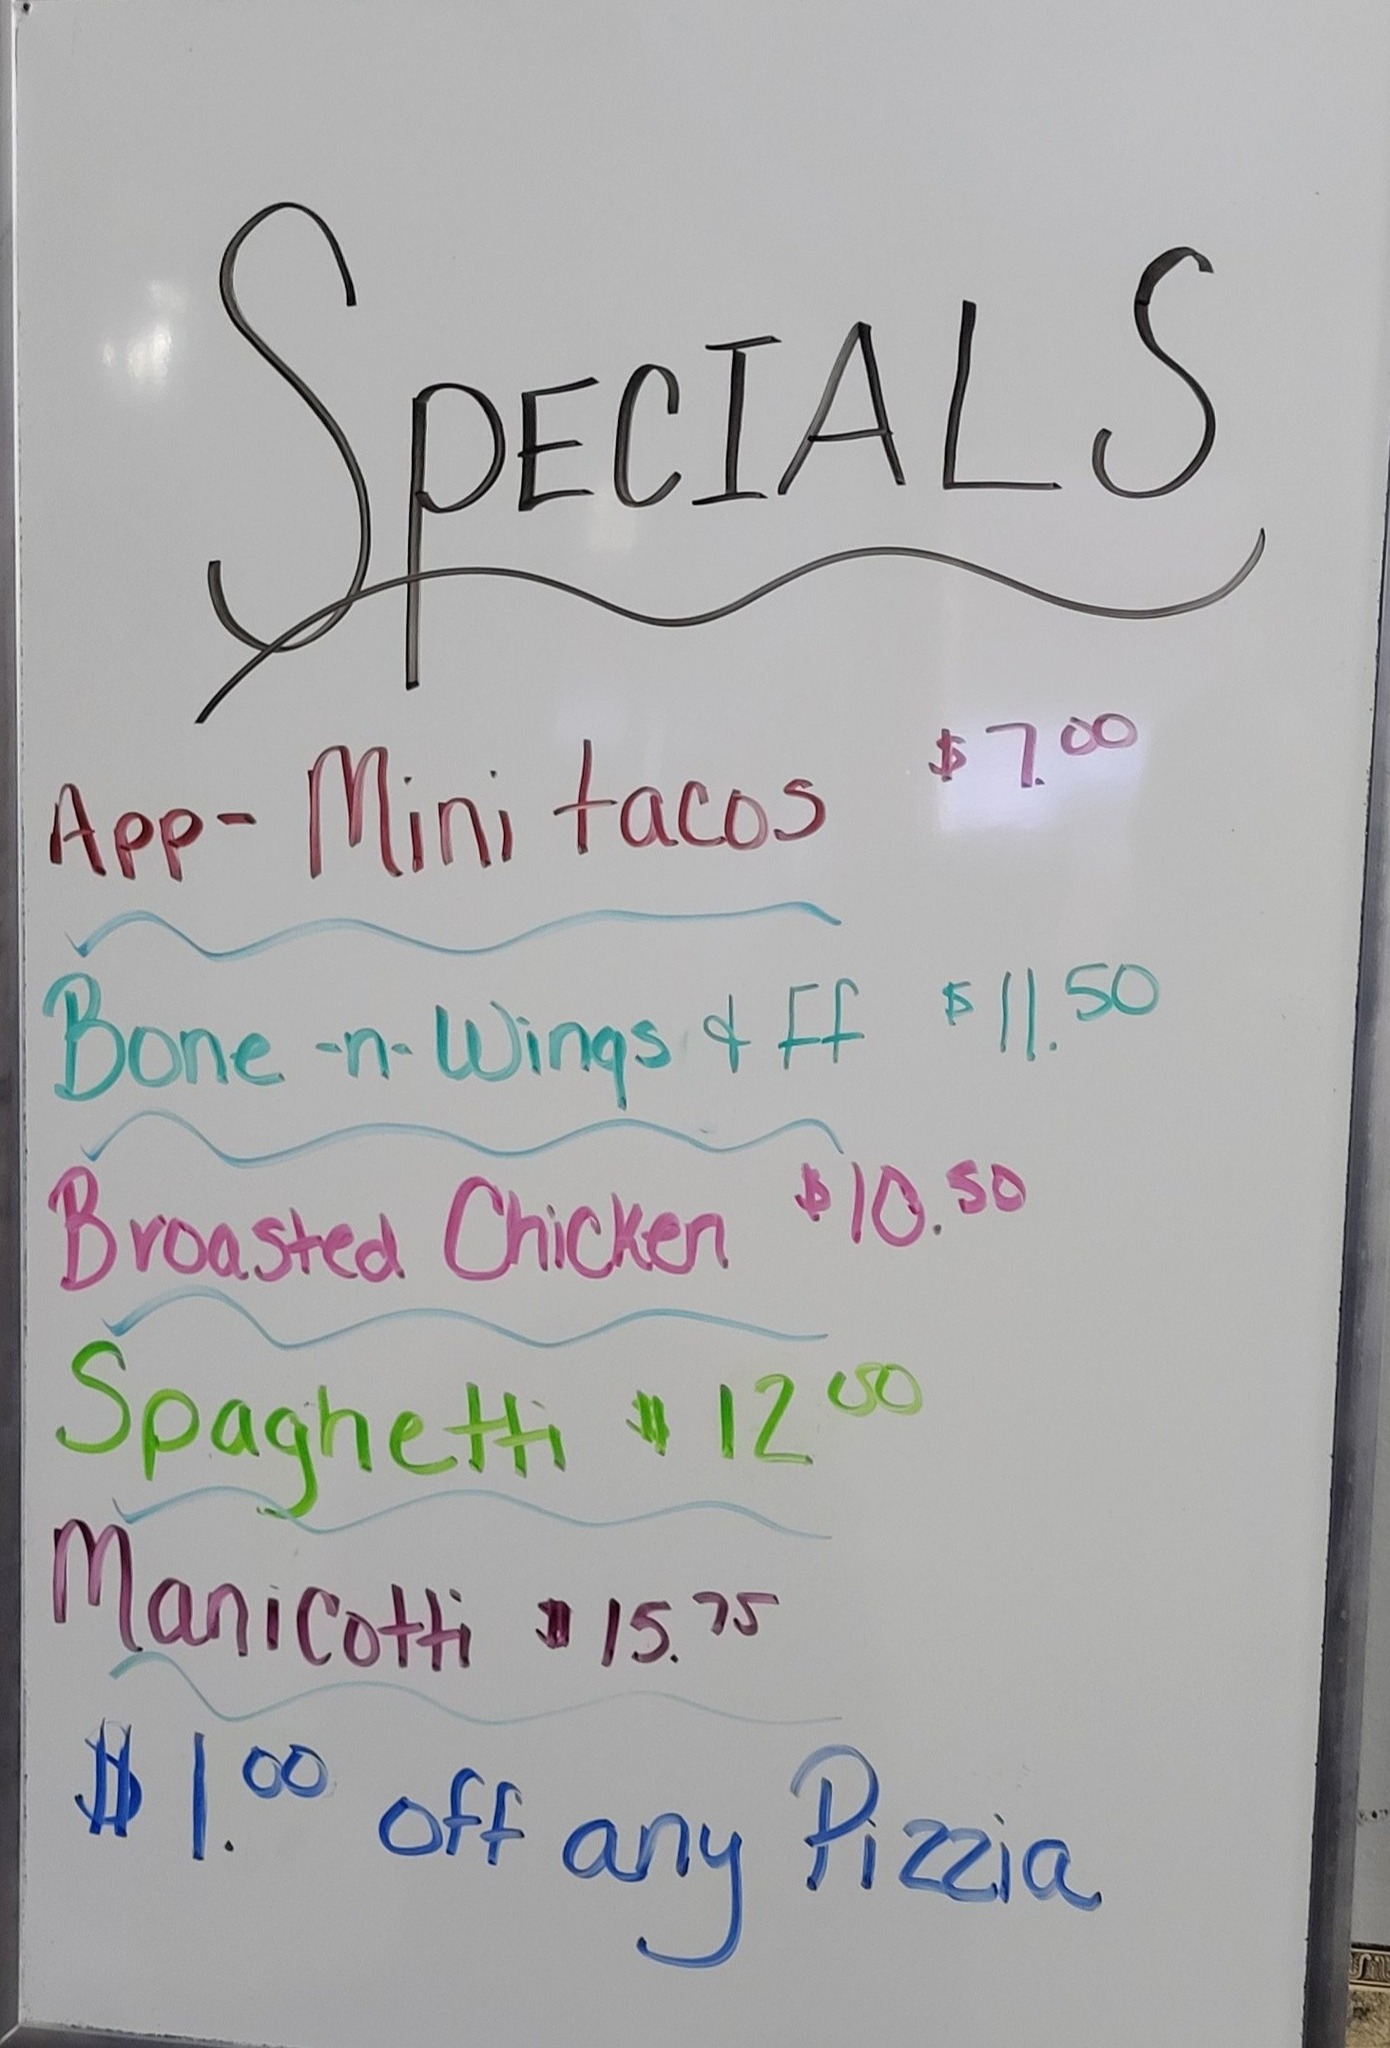 SPECIALS
App- Mini tacos $7.00
Bone -n- Wings & FF $11.50
Broasted Chicken $10.50
Spaghetti $12 00
Manicotti $15.75
$1.00 off any Pizzia